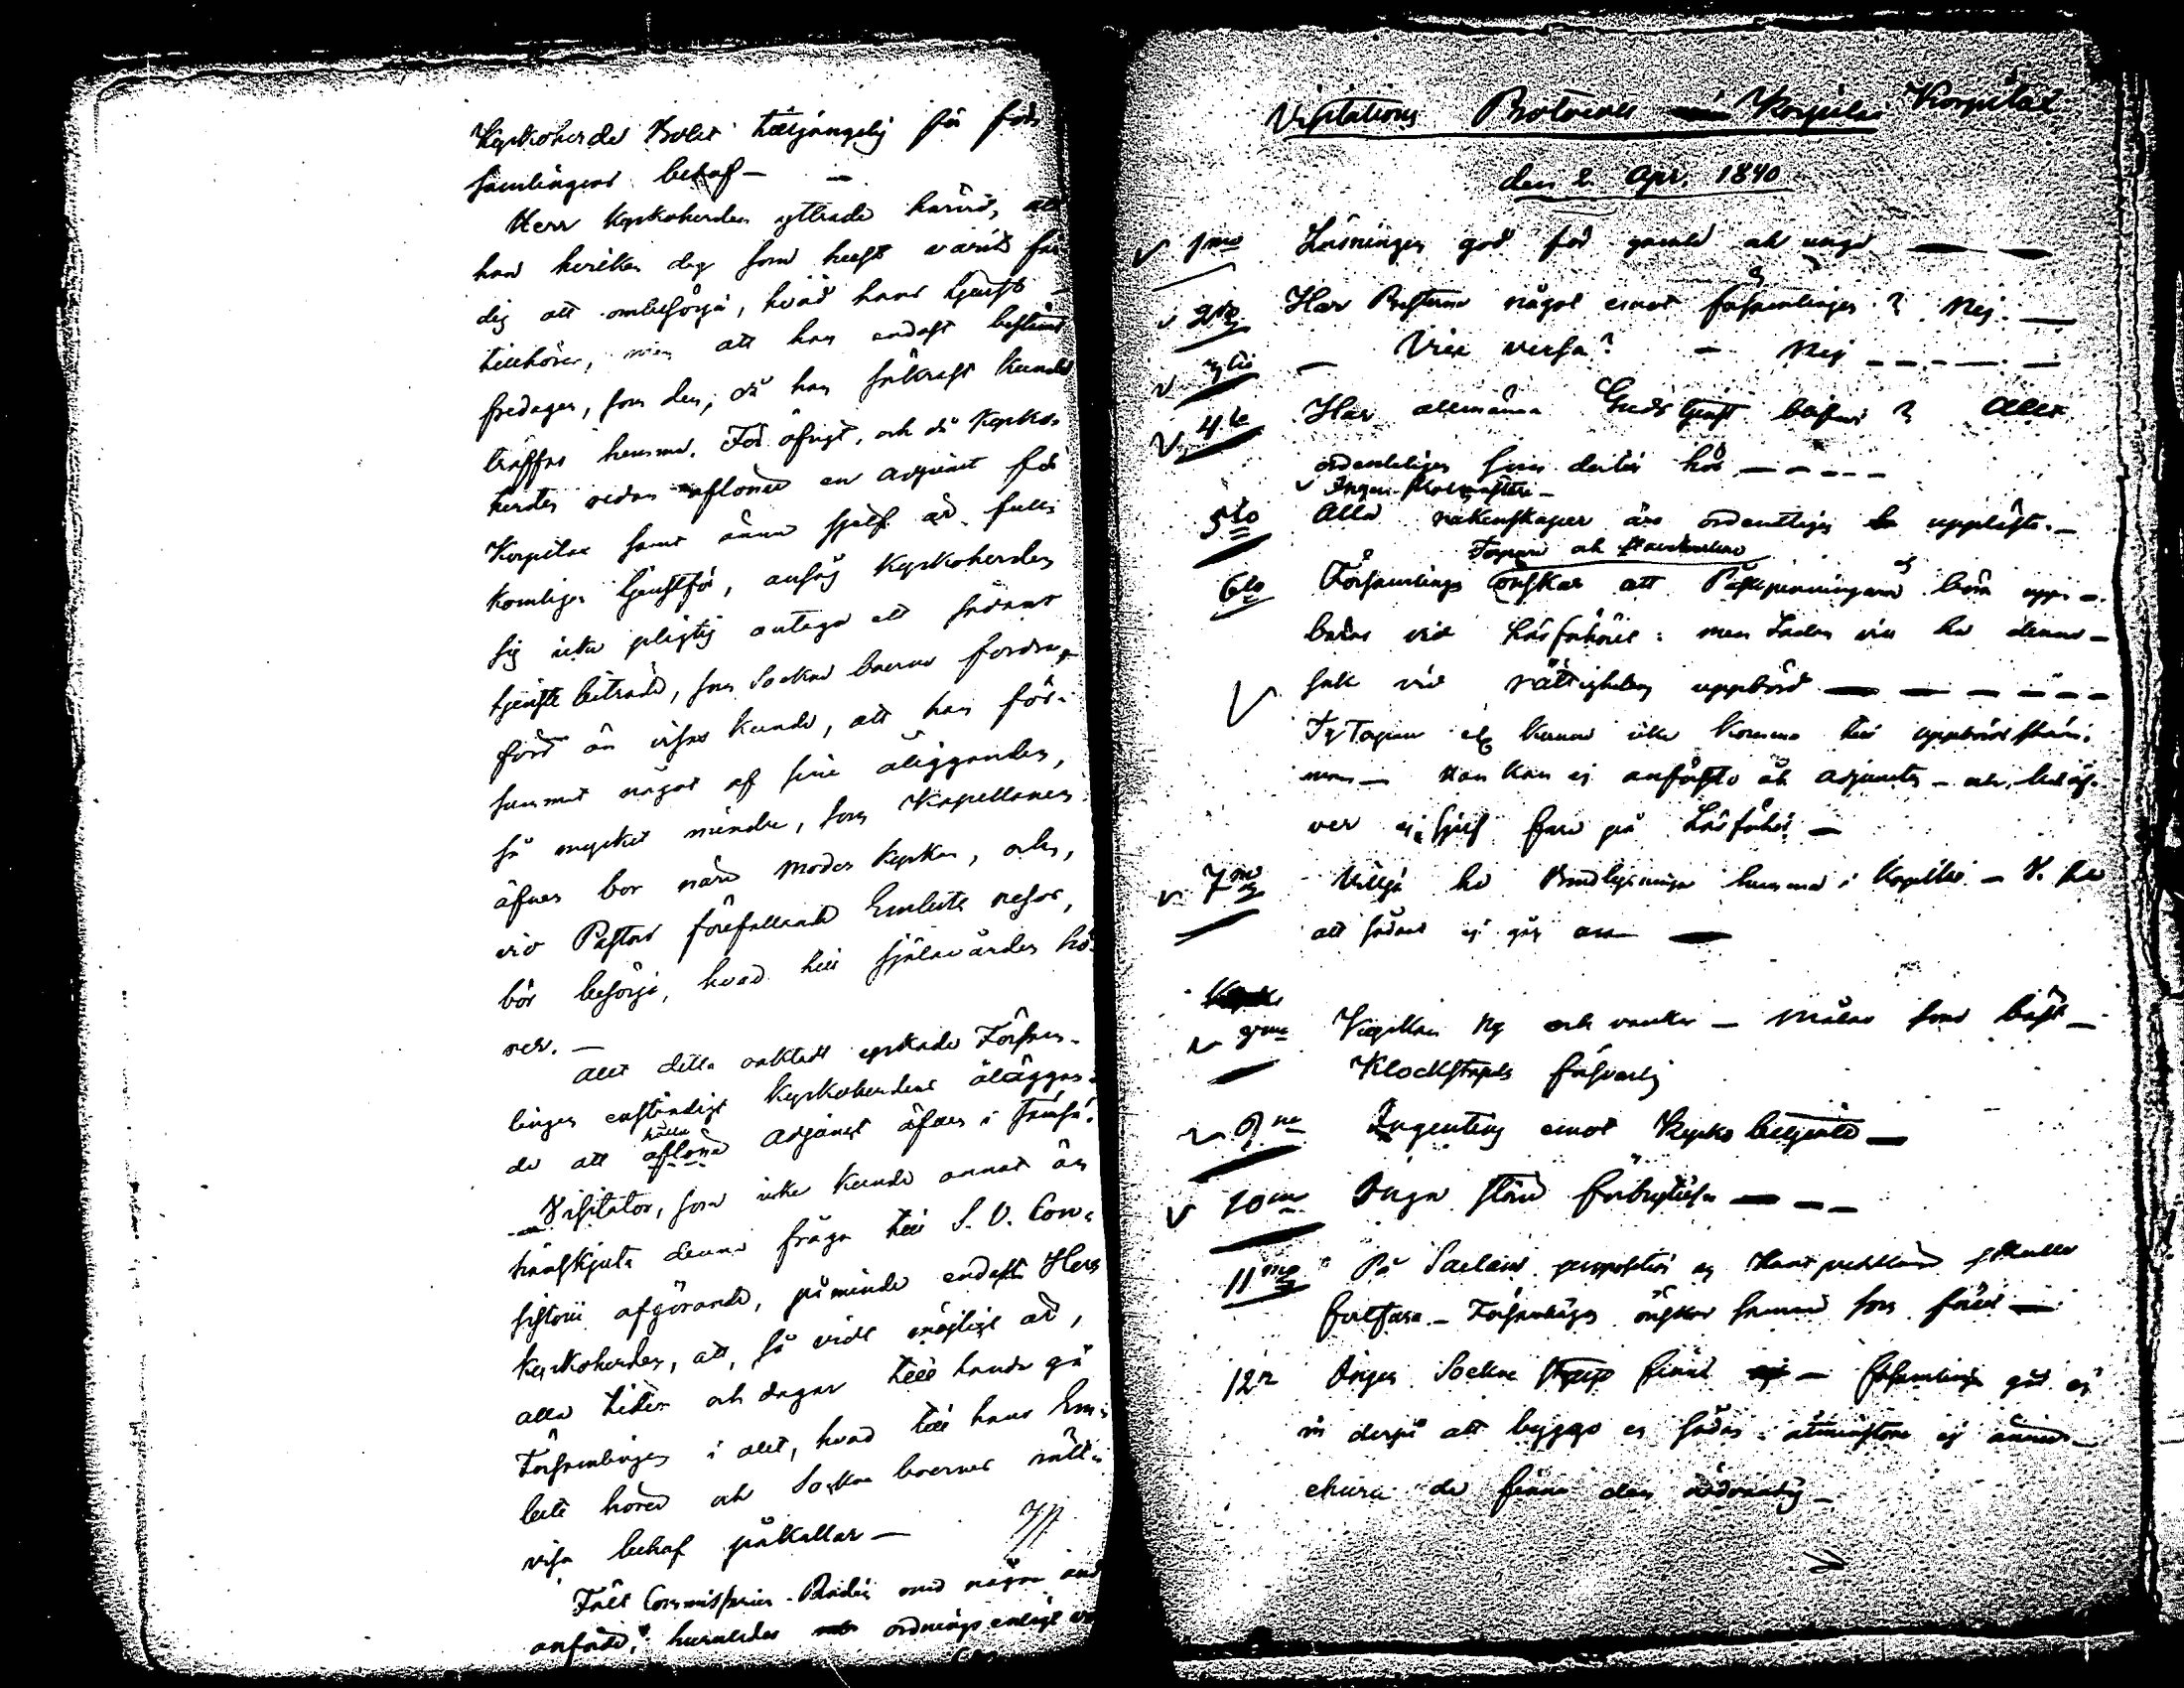 Kyrkoherde Bolet tillgängelig för för-
samlingens behof —
Herr Kyrkoherden yttrade härvid, att
han hvilken dag som helst varit fär
dig att ombesörja, hvad hans tjenst
tillhörer, men att han endast bestämt
fredagen, som den, då han säkrast kunde
träffas hemma. För öfrigt, och då Kyrko-
herden redan aflönar en adjunct för
Korpilax samt ännu sjelf är full-
komligen tjenstför, ansåg Kyrkoherden
sig icke pligtig antaga ett sådant
tjenste biträde, som Sockne boerne fordra,
förr än visas kunde, att han för-
summat något af sine åligganden,
så mycket mindre, som Kapellanen
äfven bor nära moder kyrkan, och,
vid Pastors förefallande Embets resor,
bör besörja, hvad till själavården hö-
rer. —
Allt detta oaktadt yrkade Försam-
lingen enständigt Kyrkoherdens åläggan-
de att hålla
aflöna adjunct äfven i Jämsä.
Visitator, som icke kunde annat än
hänskjuta denna fråga till S. V. Con-
sistorii afgörande, påminde endast Herr
Kyrkoherden, att, så vidt möjligt är,
alla tider och dagar till handa gå
Församlingen i allt, hvad till hans Em-
bete hörer och Sockne boernes rätt-
visa behof påkallar —
Fält Commissarien med några and
anförde, huruledes ordnings enligt
Visitations Protocoll Korpilax
den 2 Apr. 1840
1mo Läsningen god för gamla och unga
2do Har Presterna något emot församlingen? Nej.
3tio — Vice versa? — Nej
4to Har allmänna Gudstjenst Allt
ordentligen som dertill hör
5to Alla räkenskaper äro ordentligen upplästa. —
Torpare och
6to Församlingen önskar att Påskpenningarne ej böra upp-
bäras vid Läsförhöret: men vill ha denna
vid rättighetens uppbörd
Ty Torpare etc kunna icke komma till uppbördsstäm-
man — Han kan ej anförtro åt adjuncten — och behöf-
ver ej sjelf fara på Läsförhör —
7mo Vilja ha hemma i Kapellet —
att sådant ej går an
8vo Kapellan Ny och vacker — Målas som bäst —
Klockstapeln försvarlig
9no Ingenting emot Kyrko betjente —
10mo Inga stora förbrytelser
11mo På Saclens proposition
fortfara. — Församlingen önskar samma som förut —
12o Ingen Sockne finns — församlingen går ej
in derpå att bygga en sådan åtminstone ej ännu —
ehuru de finna den nödvändig —